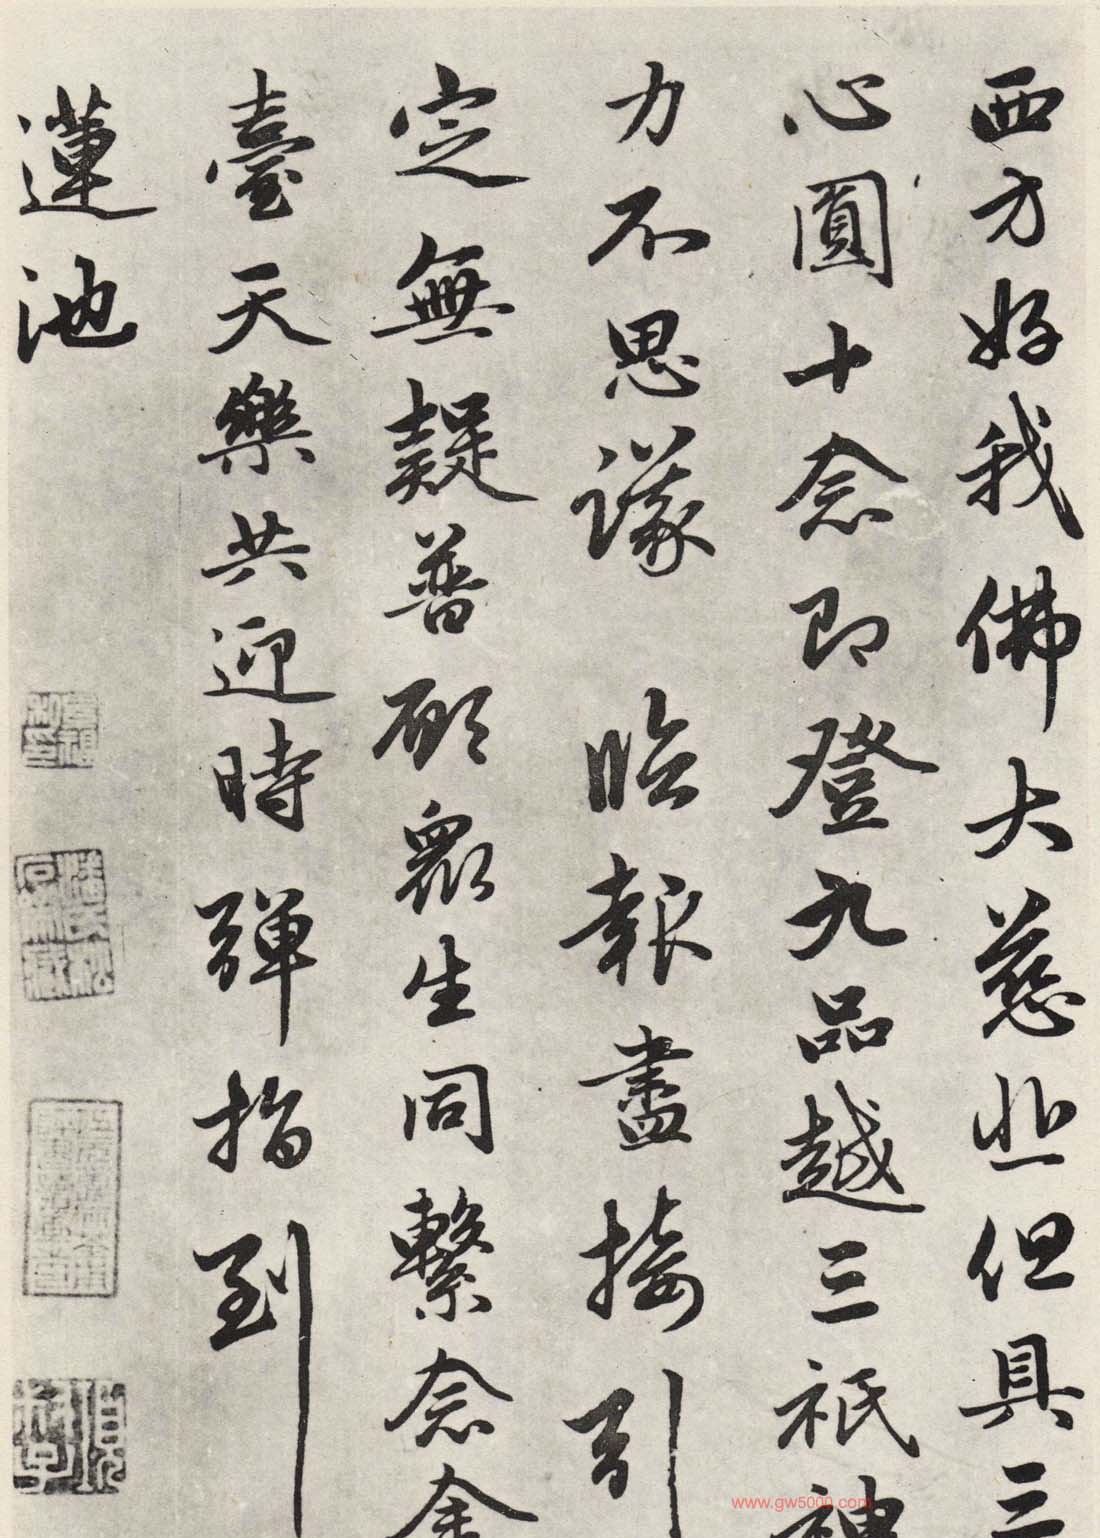 西方好我佛大慈悲但具三
心圓十念即登九品越三祇神
力不思議 臨報盡接引
定無疑普願衆生同繫念金
臺天樂共迎時彈指到
蓮池
www.gw5000.com